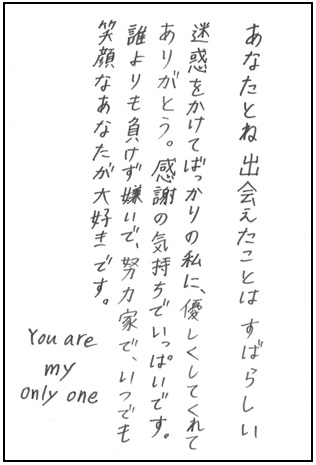 あなたとね 出会えたことは すばらしい
迷惑をかけてばっかりの私に、優しくしてくれて
ありがとう。感謝の気持ちでいっぱいです。
誰よりも負けず嫌いで、努力家で、いつでも
笑顔なあなたが大好きです。
You are
my
only one